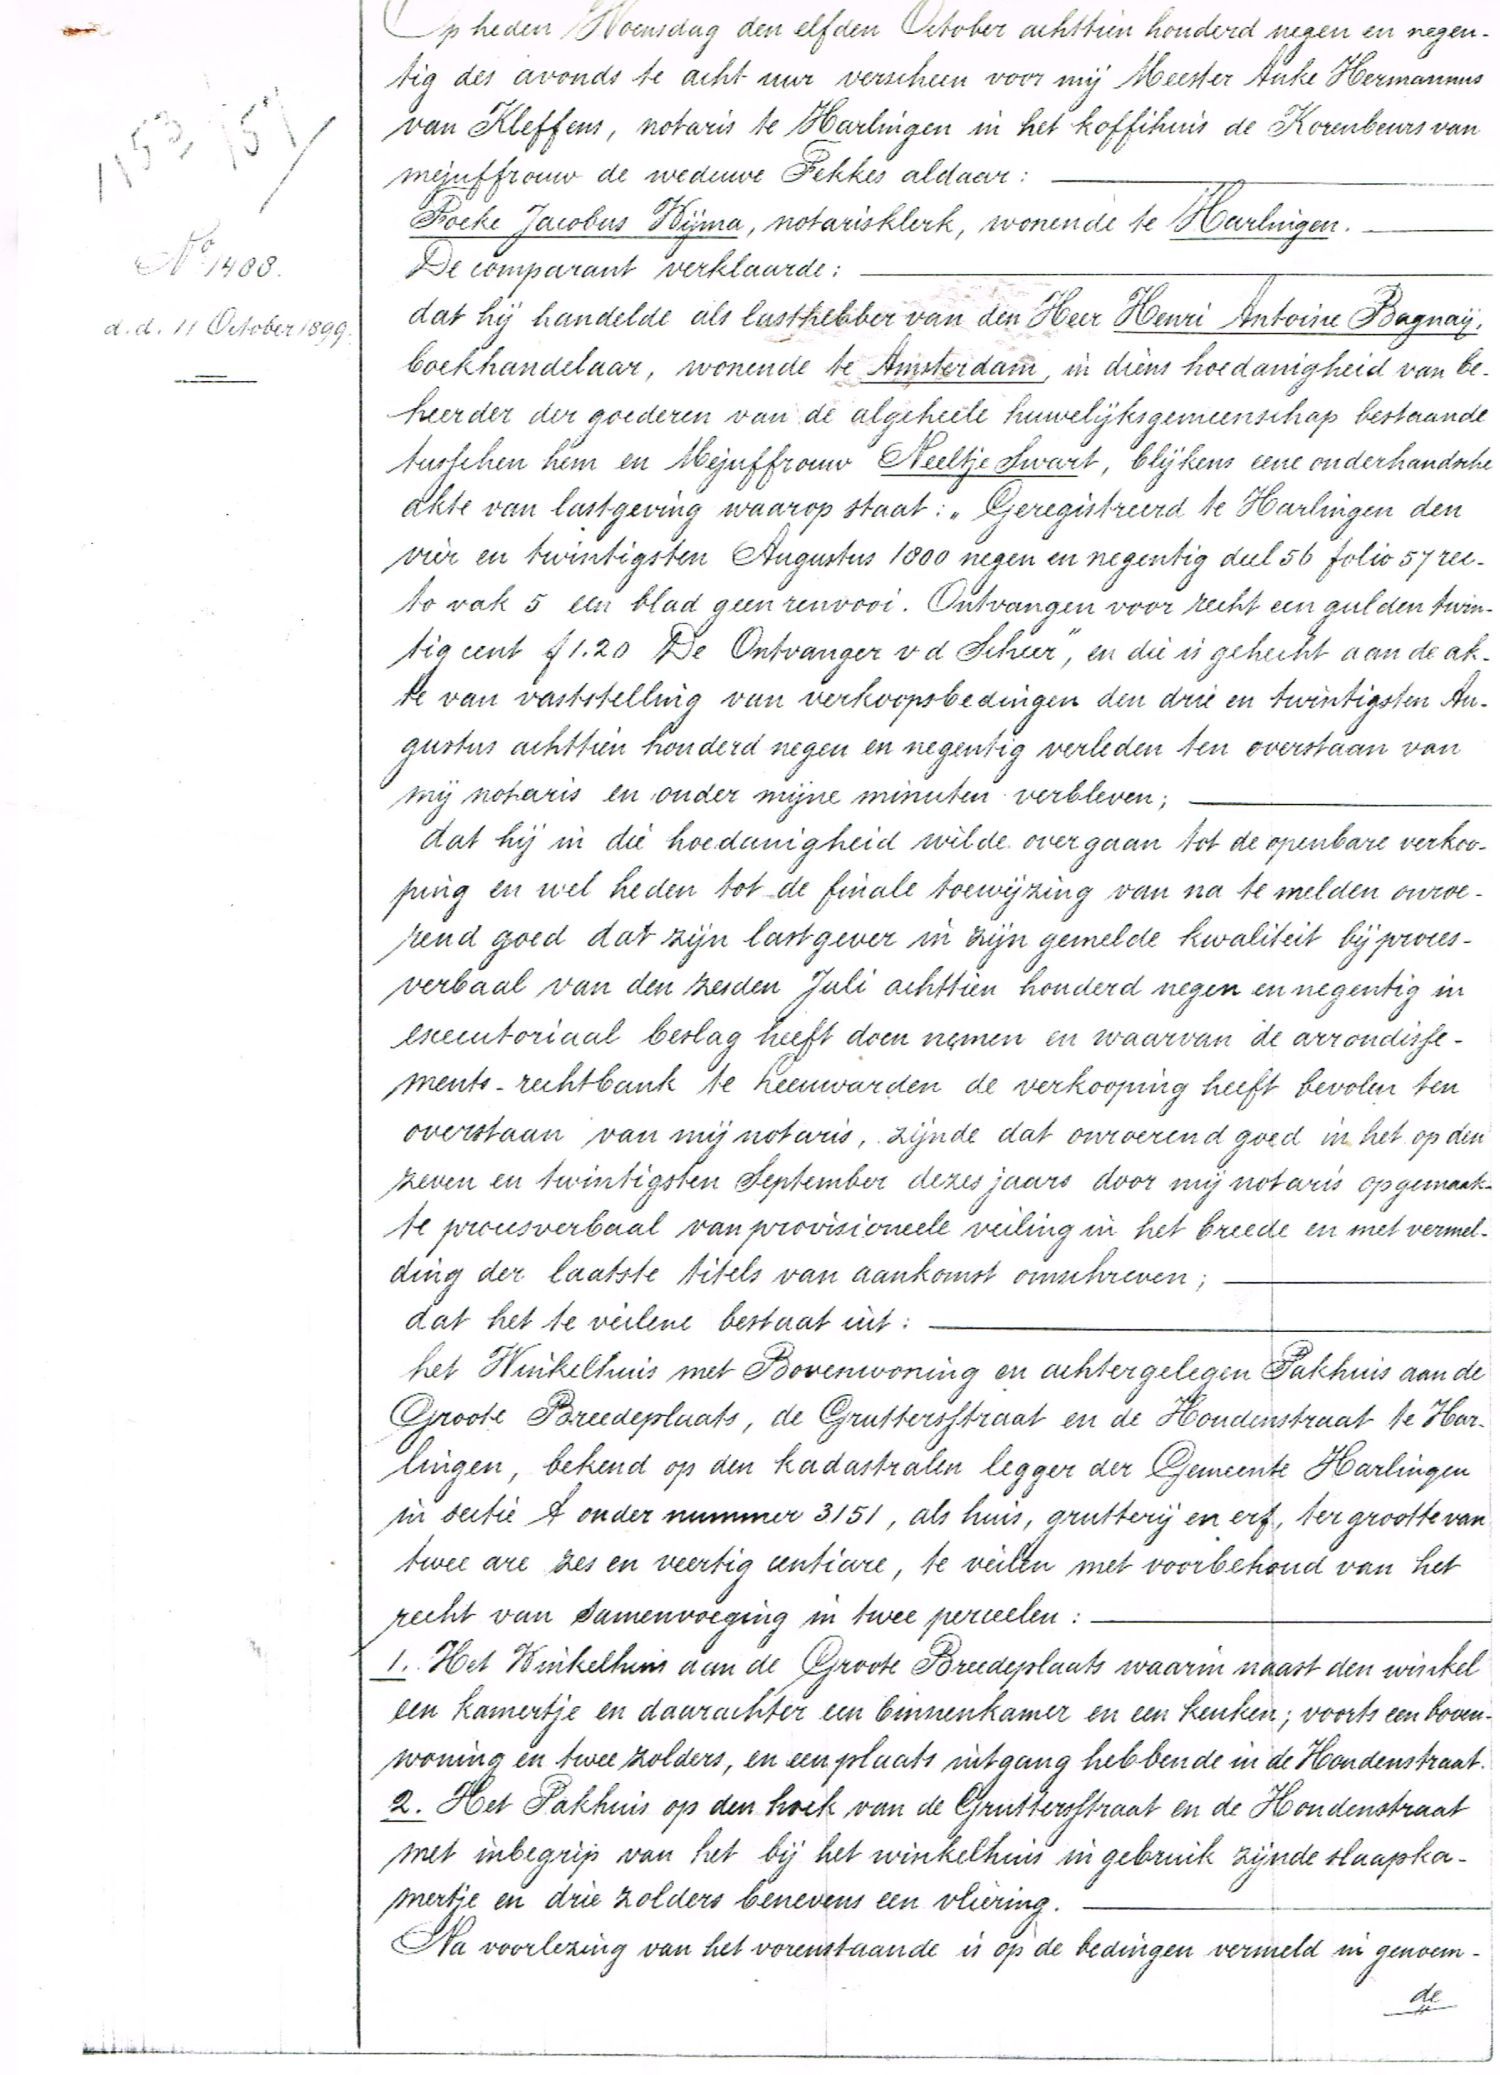 1153/151
No 1488.
d.d. 11 October 1899.
Op heden Woensdag den elfden October achttien honderd negen en negen-
tig des avonds te acht uur verscheen voor mij Meester Anke Hermannus
van Kleffens, notaris te Harlingen in het koffihuis de Korenbeurs van
mejuffrouw de weduwe Fekkes aldaar:
Foeke Jacobus Wijma, notarisklerk, wonende te Harlingen.
De comparant verklaarde:
dat hij handelde als lasthebber van den Heer Henri Antoine Bagnaij,
boekhandelaar, wonende te Amsterdam, in diens hoedanigheid van be-
heerder der goederen van de algeheele huwelijksgemeenschap bestaande
tusschen hem en Mejuffrouw Neeltje Swart, blijkens eene onderhandsche
akte van lastgeving waarop staat: „Geregistreerd te Harlingen den
vier en twintigsten Augustus 1800 negen en negentig deel 56 folio 57 rec-
to vak 5 een blad geen renvooi. Ontvangen voor recht een gulden twin-
tig cent f 1.20 De Ontvanger v d Scheer”, en die is gehecht aan de ak-
te van vaststelling van verkoopsbedingen den drie en twintigsten Au-
gustus achttien honderd negen en negentig verleden ten overstaan van
mij notaris en onder mijne minuten verbleven;
dat hij in die hoedanigheid wilde overgaan tot de openbare verkoo-
ping en wel heden tot de finale toewijzing van na te melden onroe-
rend goed dat zijn lastgever in zijn gemelde kwaliteit bij proces-
verbaal van den zesden Juli achttien honderd negen en negentig in
executoriaal beslag heeft doen nemen en waarvan de arrondisse-
ments-rechtbank te Leeuwarden de verkooping heeft bevolen ten
overstaan van mij notaris, zijnde dat onroerend goed in het op den
zeven en twintigsten September dezes jaars door mij notaris opgemaak-
te procesverbaal van provisioneele veiling in het breede en met vermel-
ding der laatste titels van aankomst omschreven;
dat het te veilene bestaat uit:
het Winkelhuis met Bovenwoning en achtergelegen Pakhuis aan de
Groote Breedeplaats, de Gruttersstraat en de Hondenstraat te Har-
lingen, bekend op den kadastralen legger der Gemeente Harlingen
in sectie A onder nummer 3151, als huis, grutterij en erf, ter grootte van
twee are zes en veertig centiare, te veilen met voorbehoud van het
recht van samenvoeging in twee perceelen:
1. Het Winkelhuis aan de Groote Breedeplaats waarin naast den winkel
een kamertje en daarachter een binnenkamer en een keuken; voorts een boven-
woning en twee zolders, en een plaats uitgang hebbende in de Hondenstraat.
2. Het Pakhuis op den hoek van de Gruttersstraat en de Hondenstraat
met inbegrip van het bij het winkelhuis in gebruik zijnde slaapka-
mertje en drie zolders benevens een vliering.
Na voorlezing van het vorenstaande is op de bedingen vermeld in genoem-
de